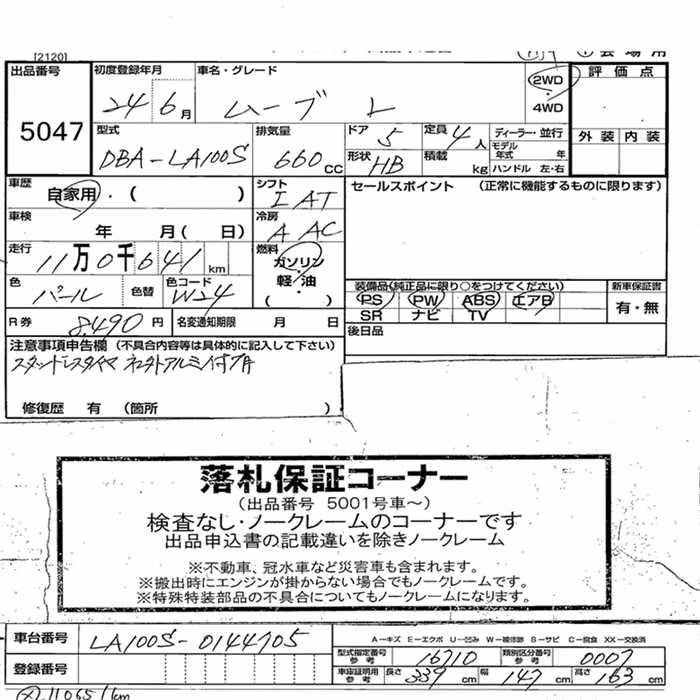 [2120]
出品番号 5047
初度登録年月 24 6月
車名・グレード ムーブ L
2WD・4WD
評価点
外装 内装
型式 DBA-LA100S
排気量 660cc
ドア 5
定員 4人
形状 HB
積載 kg
ディーラー・並行
モデル年式 年
ハンドル 左・右
車歴 自家用・( )
シフト I AT
セールスポイント (正常に機能するものに限ります)
車検 年 月 ( 日)
冷房 A AC
走行 11万0千641km
燃料 ガソリン 軽・油 ( )
色 パール 色替 色コード W24
装備品(純正品に限り○をつけてください)
PS PW ABS エアB
SR ナビ TV
新車保証書 有・無
R券 8,490円
名変通知期限 月 日
後日品
注意事項申告欄 (不具合内容等は具体的に記入して下さい)
修復歴 有 (箇所 )
落札保証コーナー
(出品番号 5001号車～)
検査なし・ノークレームのコーナーです
出品申込書の記載違いを除きノークレーム
※不動車、冠水車など災害車も含まれます。
※搬出時にエンジンが掛からない場合でもノークレームです。
※特殊特装部品の不具合についてもノークレームになります。
車台番号 LA100S-0144705
A-キズ E-エクボ U-凹み W-補修跡 S-サビ C-腐食 XX-交換済
型式指定番号 参考 16710
類別区分番号 参考 0007
登録番号
車庫証明用 参考 長さ 339cm 幅 147cm 高さ 163cm